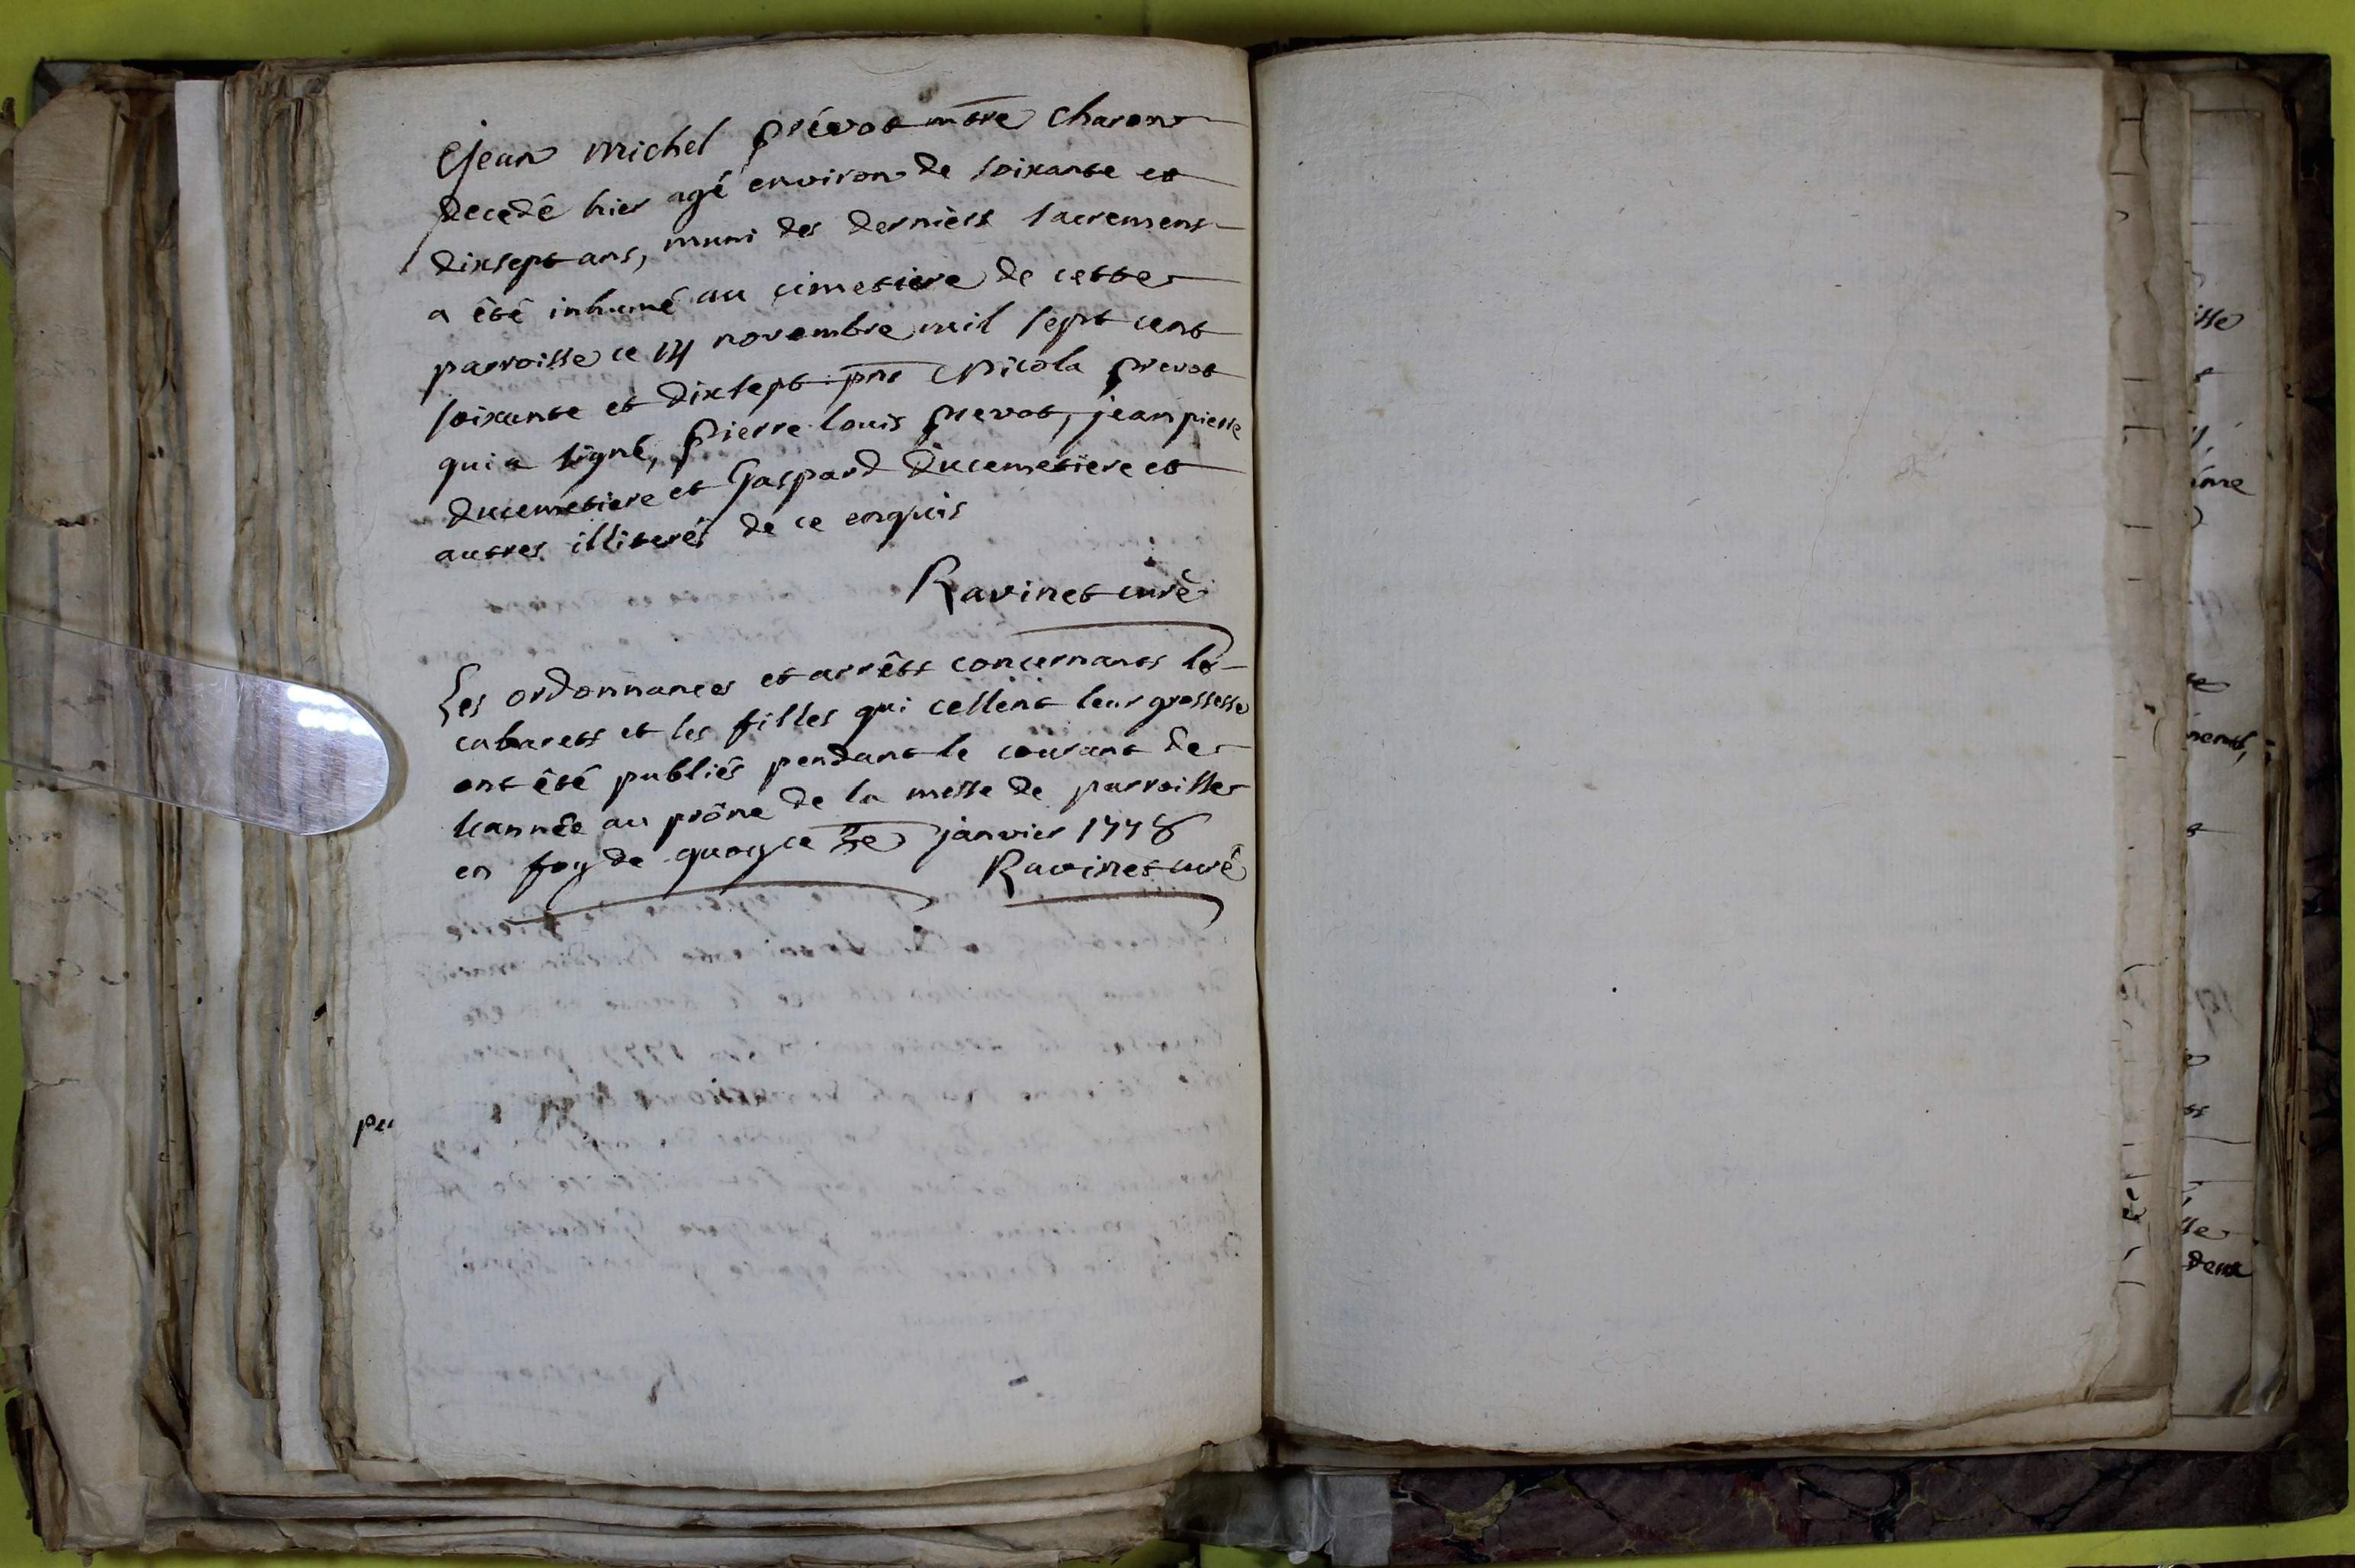 jean michel prévot mtre charon
decedé hier agé environ de soixante et
dixsept ans, muni des derniers sacremens
a été inhumé au cimetiere de cette
parroisse ce 14 novembre mil sept cent
soixante et dixsept pnt Nicola prevot
qui a signé, pierre louis prevot, jean pierre
ducemetiere et Gaspard ducemetiere et
autres illiterés de ce enquis
Ravinet curé
Les ordonnances et arrêts concernants les
cabarets et les filles qui cellent leur grossesse
ont été publiés pendant le courant de
l'année au prône de la messe de parroisse
en foy de quoy ce 3e janvier 1778
Ravinet curé